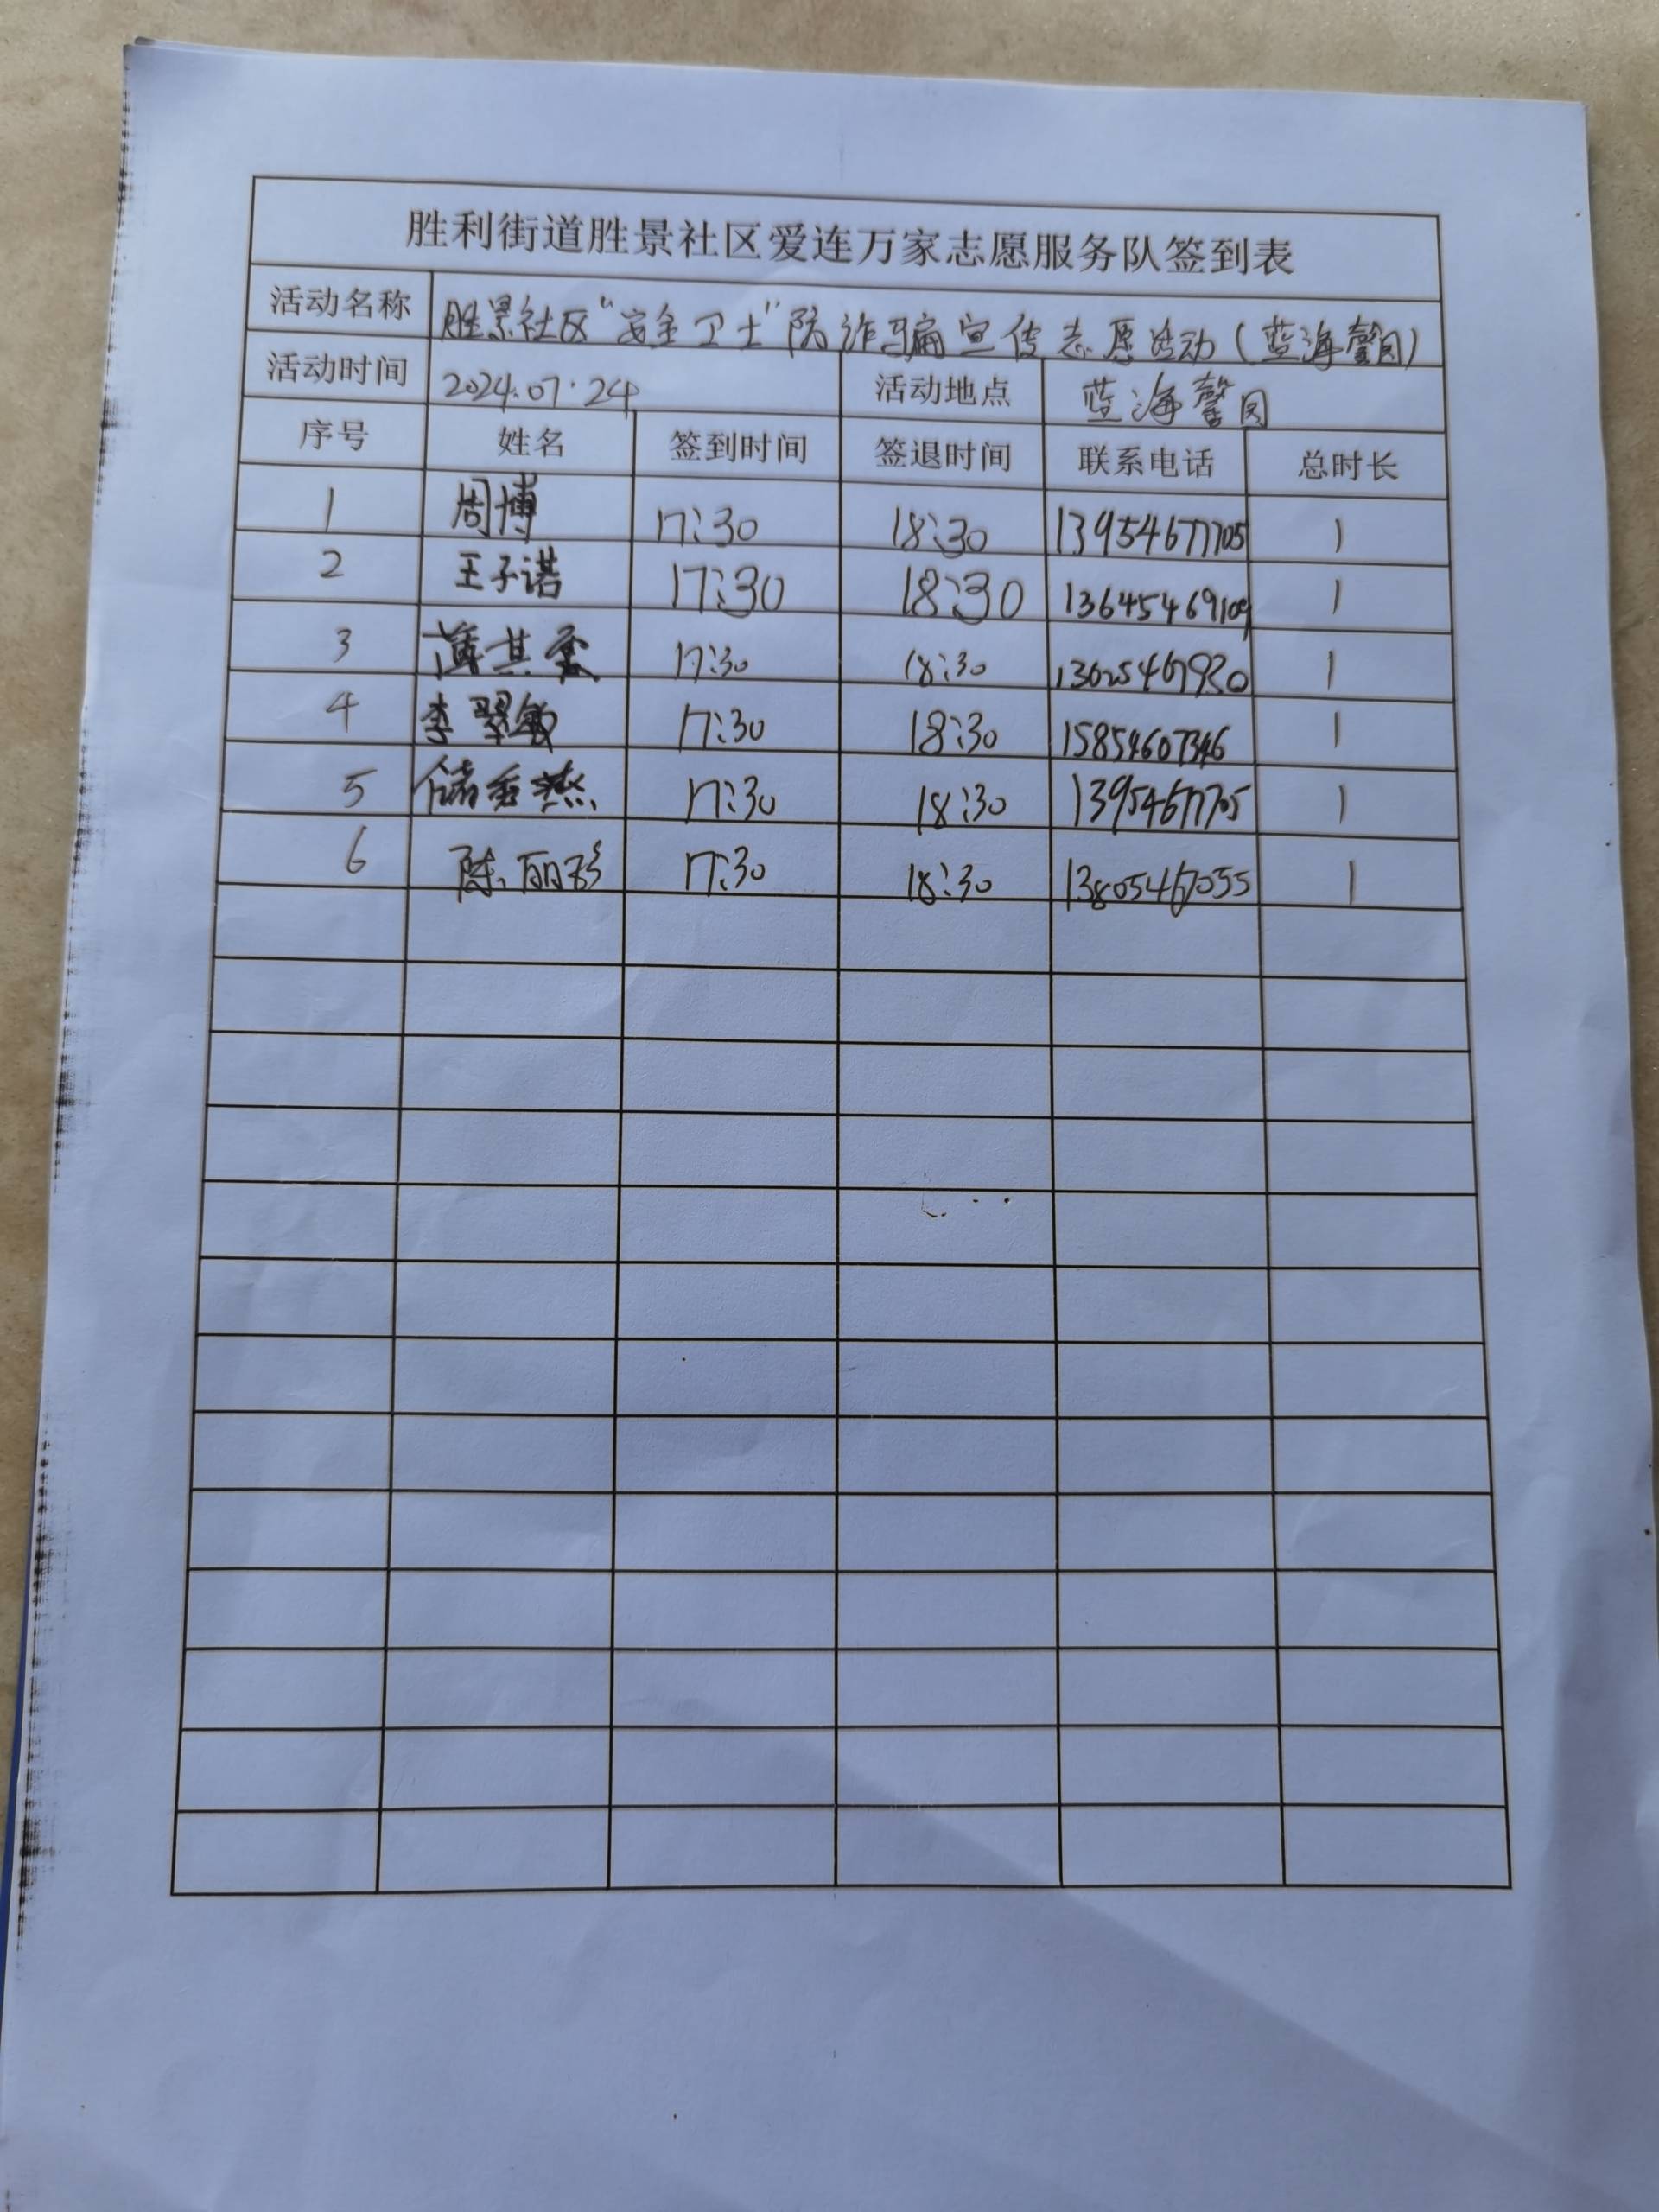 胜利街道胜景社区爱连万家志愿服务队签到表
活动名称 胜景社区“安全卫士”防诈骗宣传志愿活动(蓝海馨园)
活动时间 2024.07.24 活动地点 蓝海馨园
序号 姓名 签到时间 签退时间 联系电话 总时长
1 周博 17:30 18:30 13954677705 1
2 王子诺 17:30 18:30 13645469109 1
3 17:30 18:30 1
4 李翠敏 17:30 18:30 15854607346 1
5 17:30 18:30 13954677705 1
6 陈丽珍 17:30 18:30 13805467055 1